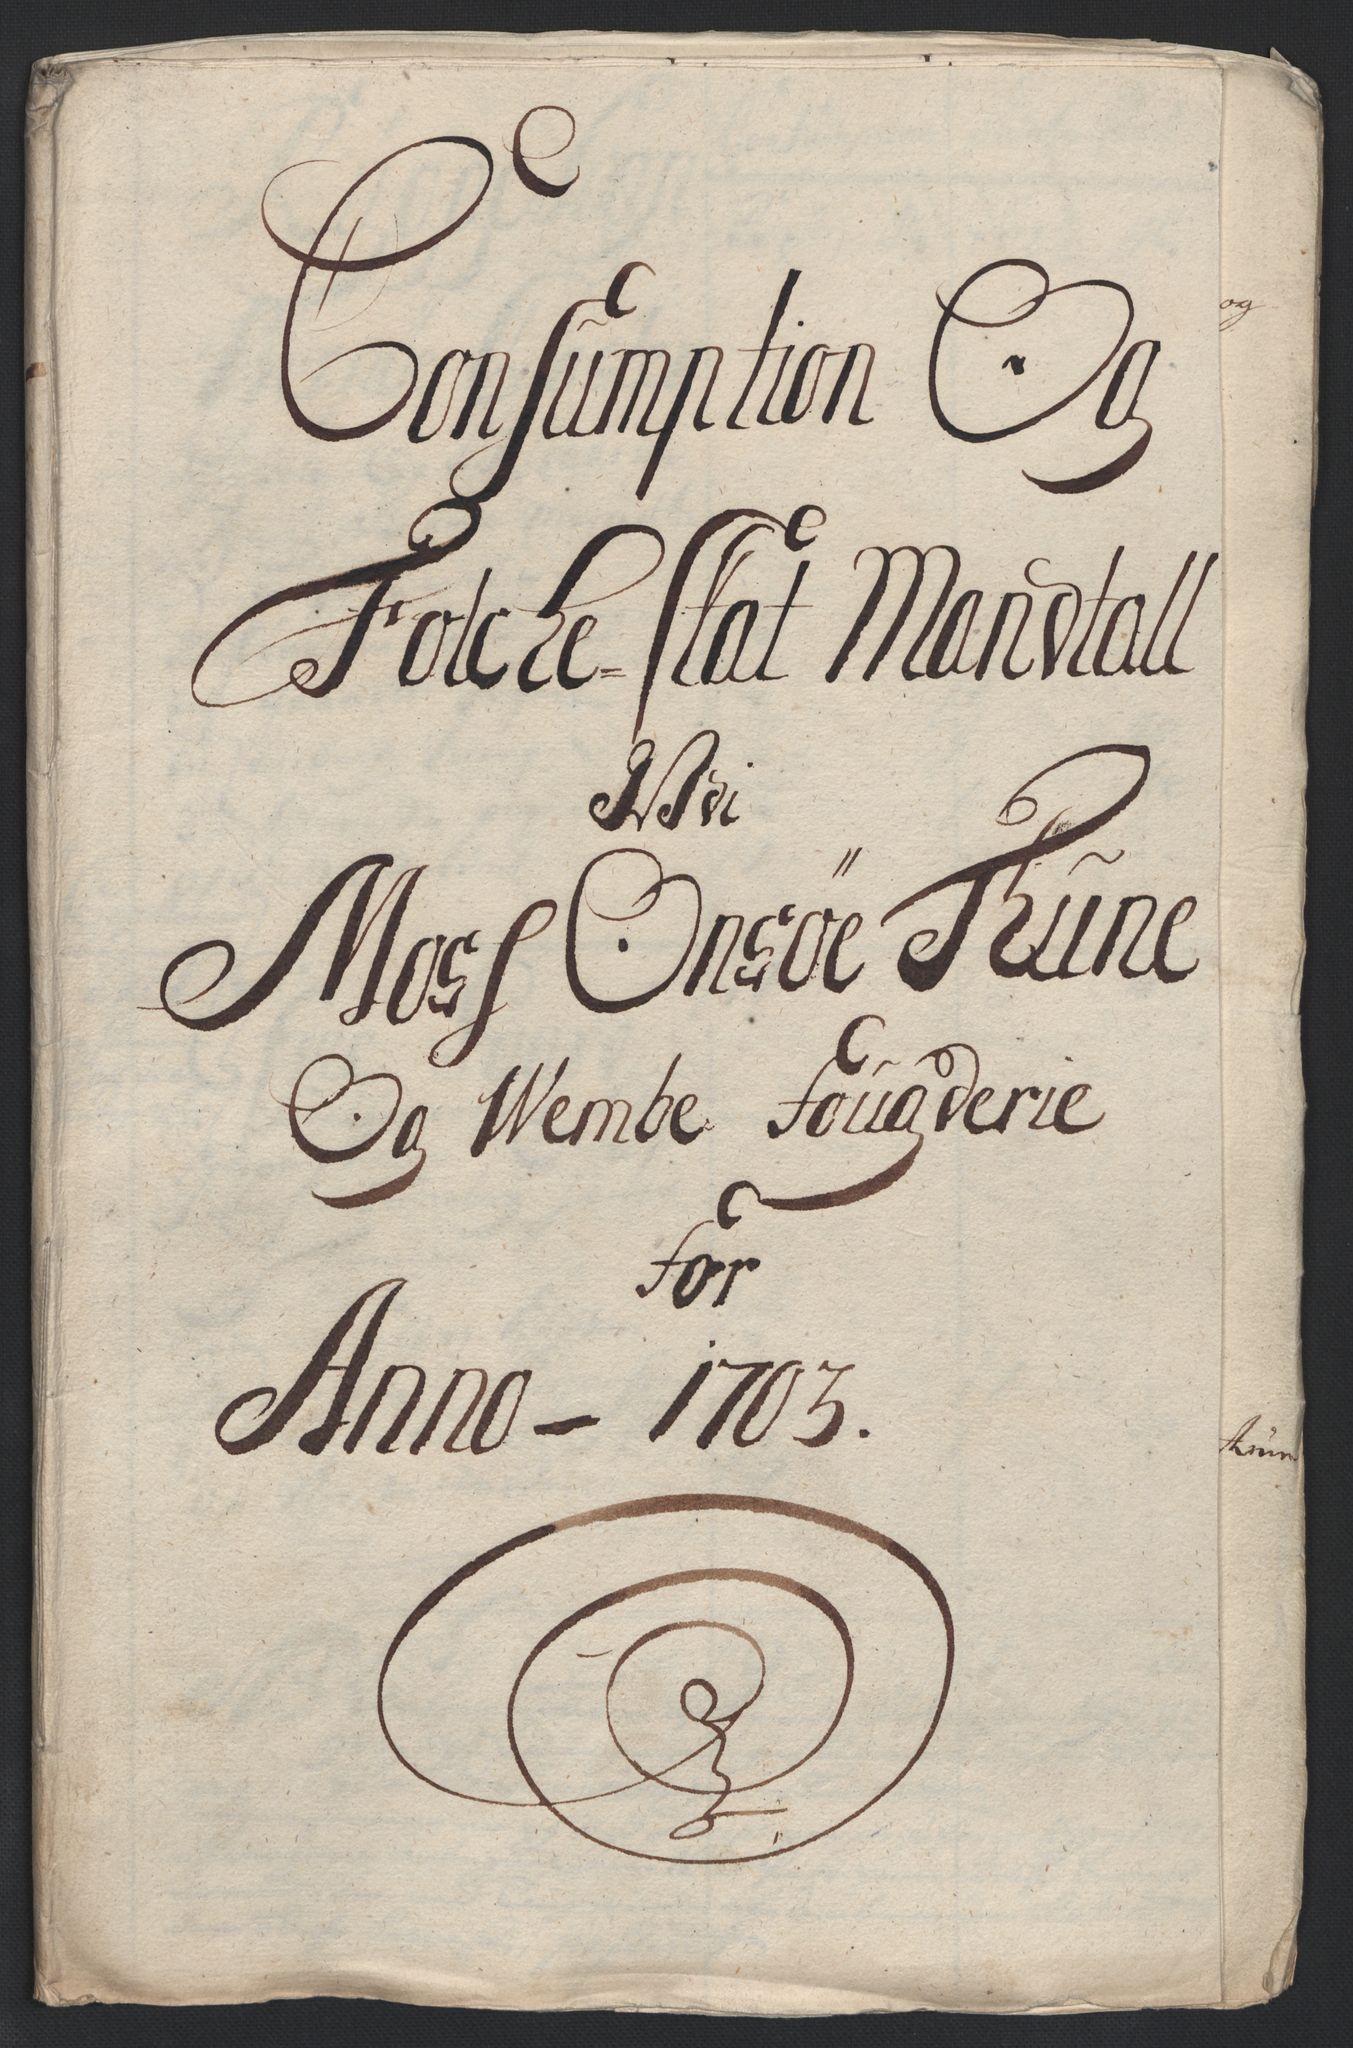 Consumption Og
Folche-Skat Mandtall
Udi
Moss Onsöe Thune
Og Wembe fougderie
for
Anno - 1703.
og